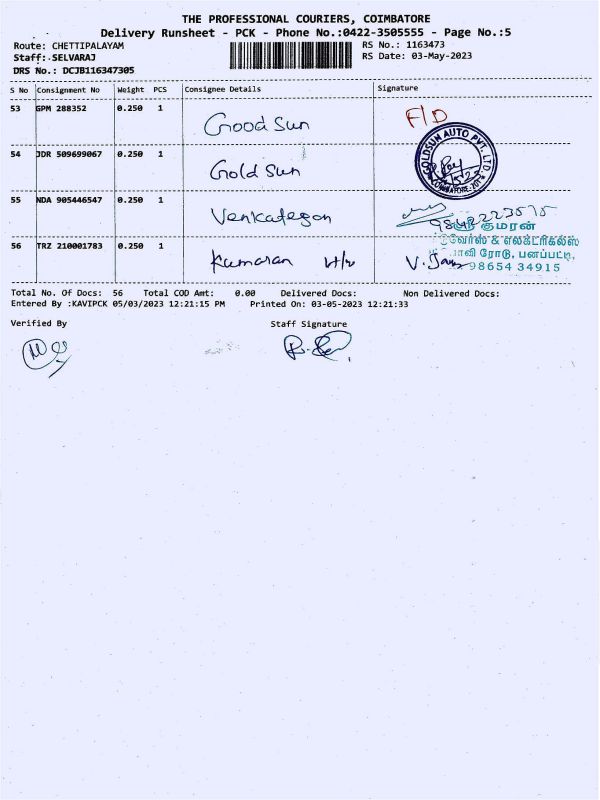 THE PROFESSIONAL COURIERS, COIMBATORE
Delivery Runsheet - PCK - Phone No.:0422-3505555 - Page No.:5
Route: CHETTIPALAYAM RS No.: 1163473
Staff: SELVARAJ RS Date: 03-May-2023
DRS No.: DCJB116347305
S No Consignment No Weight PCS Consignee Details Signature
53 GPM 288352 0.250 1 Good Sun F/D
54 JDR 509699067 0.250 1 Gold Sun
GOLDSUN AUTO PVT. LTD.
55 NDA 905446547 0.250 1 Venkategan
குமரன்
& எலக்ட்ரிகல்ஸ்
ரோடு, பனப்பட்டி,
56 TRZ 210001783 0.250 1 Kumaran H/w 98654 34915
Total No. Of Docs: 56 Total COD Amt: 0.00 Delivered Docs: Non Delivered Docs:
Entered By :KAVIPCK 05/03/2023 12:21:15 PM Printed On: 03-05-2023 12:21:33
Verified By Staff Signature